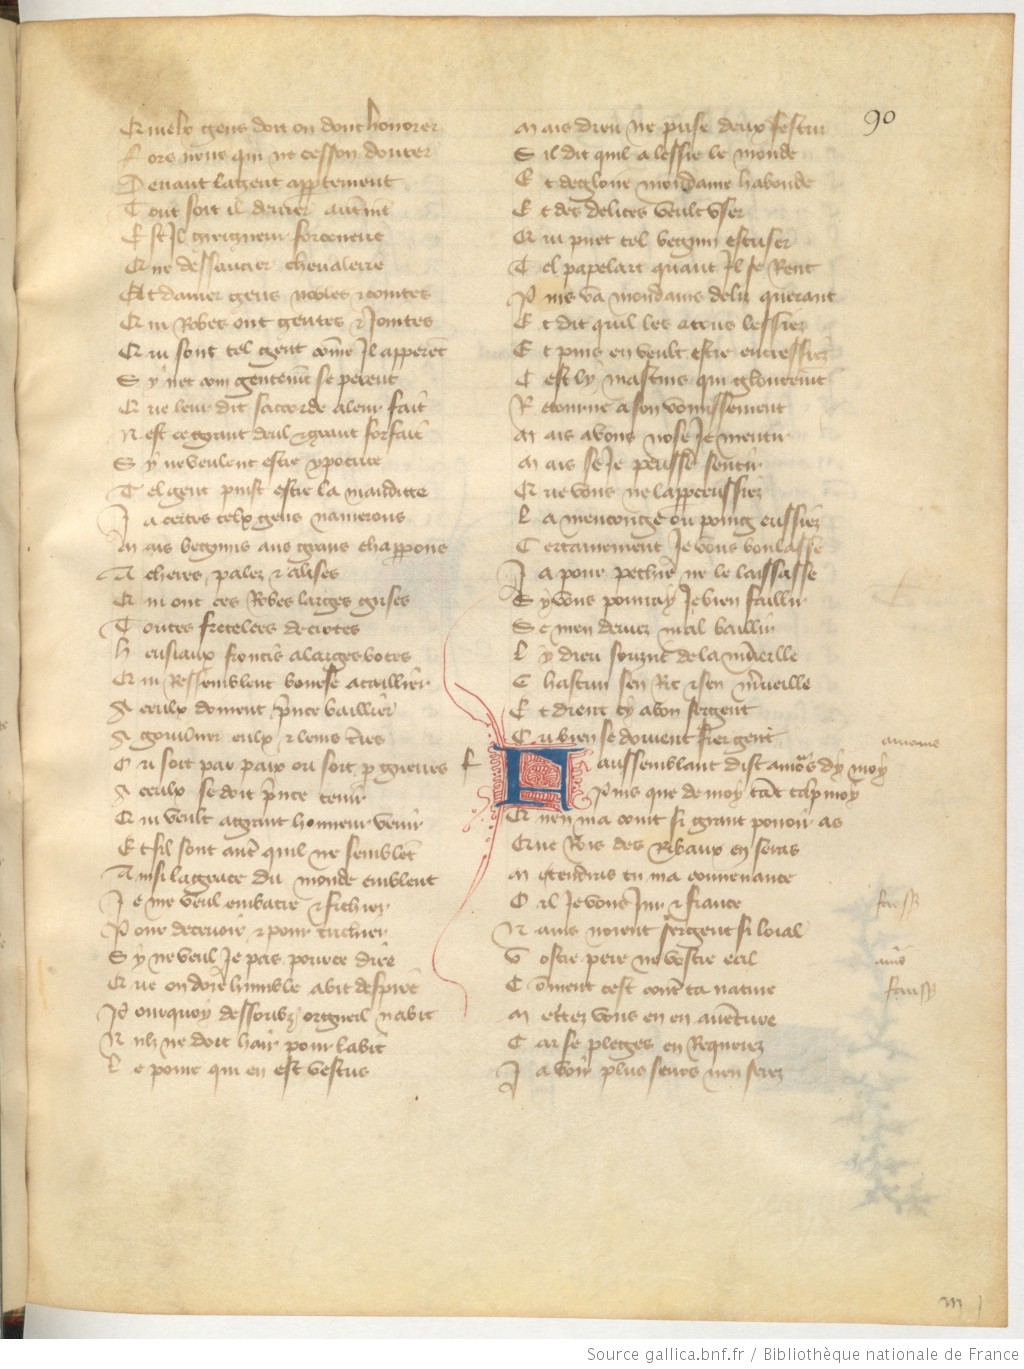 Quelx gens doit on dont honorer
Fors nous qui ne cesson dourer
Devant la gent appertement
Tout soit il derrier autrement
Est il greigneur forcenerie
Que de essaucier chevalerie
Et damer gens nobles et cointes
Qui robes ont gentes et jointes
Qui sont tel gent comme il apperent
Sy net com gentement se perent
Que leur dit sacorde a leur fait
Nest ce grant deul et grant forfait
Sy ne veulent estre ypocrite
Tel gent puist estre la maudicte
Ja certes telx gens namerons
Mais beguins aus grans chapperons
A cheres palez et alises
Qui ont ces robes larges grises
Toutes fretelees de crotes
Housiaux froncis a larges botes
Qui ressemblent bourse a caillier
A ceulx doivent prince baillier
A gouverner eulx et leurs terres
Ou soit par paix ou soit par guerres
A ceulx se doit prince tenir
Qui veult a grant honneur venir
Et sil sont autre quil ne semblent
Ainsi la grace du monde emblent
Je me veul embatre et fichier
Pour decevoir et pour tuchier
Sy ne veul je pas pource dire
Que on doie humble abit despire
Pourquoy dessoubz orgueil nabit
Nulz ne doit hair pour labit
Le povre qui en est vestus
90
Mais dieu ne prise deux festus
Sil dit quil a lessie le monde
Et de gloire mondaine habonde
Et des delices veult user
Qui puet tel beguin escuser
Tel papelart quant il se rent
Puis va mondains deliz querant
Et dit quil les a tous lessiez
Et puis en veult estre encressiez
Cest ly mastins qui gloutement
Retourne a son vomissement
Mais a vous nose je mentir
Mais se je peusse sentir
Que vous ne lapperceussiez
La menconge ou poing eussiez
Certainement je vous boulasse
Ja pour pechie ne le laissasse
Sy vous pourray je bien faillir
Se men deviez mal baillir
Ly dieu sourrit de la merveille
Chascun sen rit et sen merveille
Et dient cy a bon sergent
Ou bien se doivent fier gent
Faussemblant dist amours dy moy
Puis que de moy tant tapmoy
Quen ma court si grant pouoir as
Que rois des ribaux en seras
Me tendras tu ma convenance
Oil je vous jur et fiance
Nains noient sergent si loial
Vostre pere ne vostre eal
Comment cest contre ta nature
Mettez vous en en aventure
Car se pleiges en requerez
Ja voir plus seurs nen serez
Source gallica.bnf.fr / Bibliothèque nationale de France